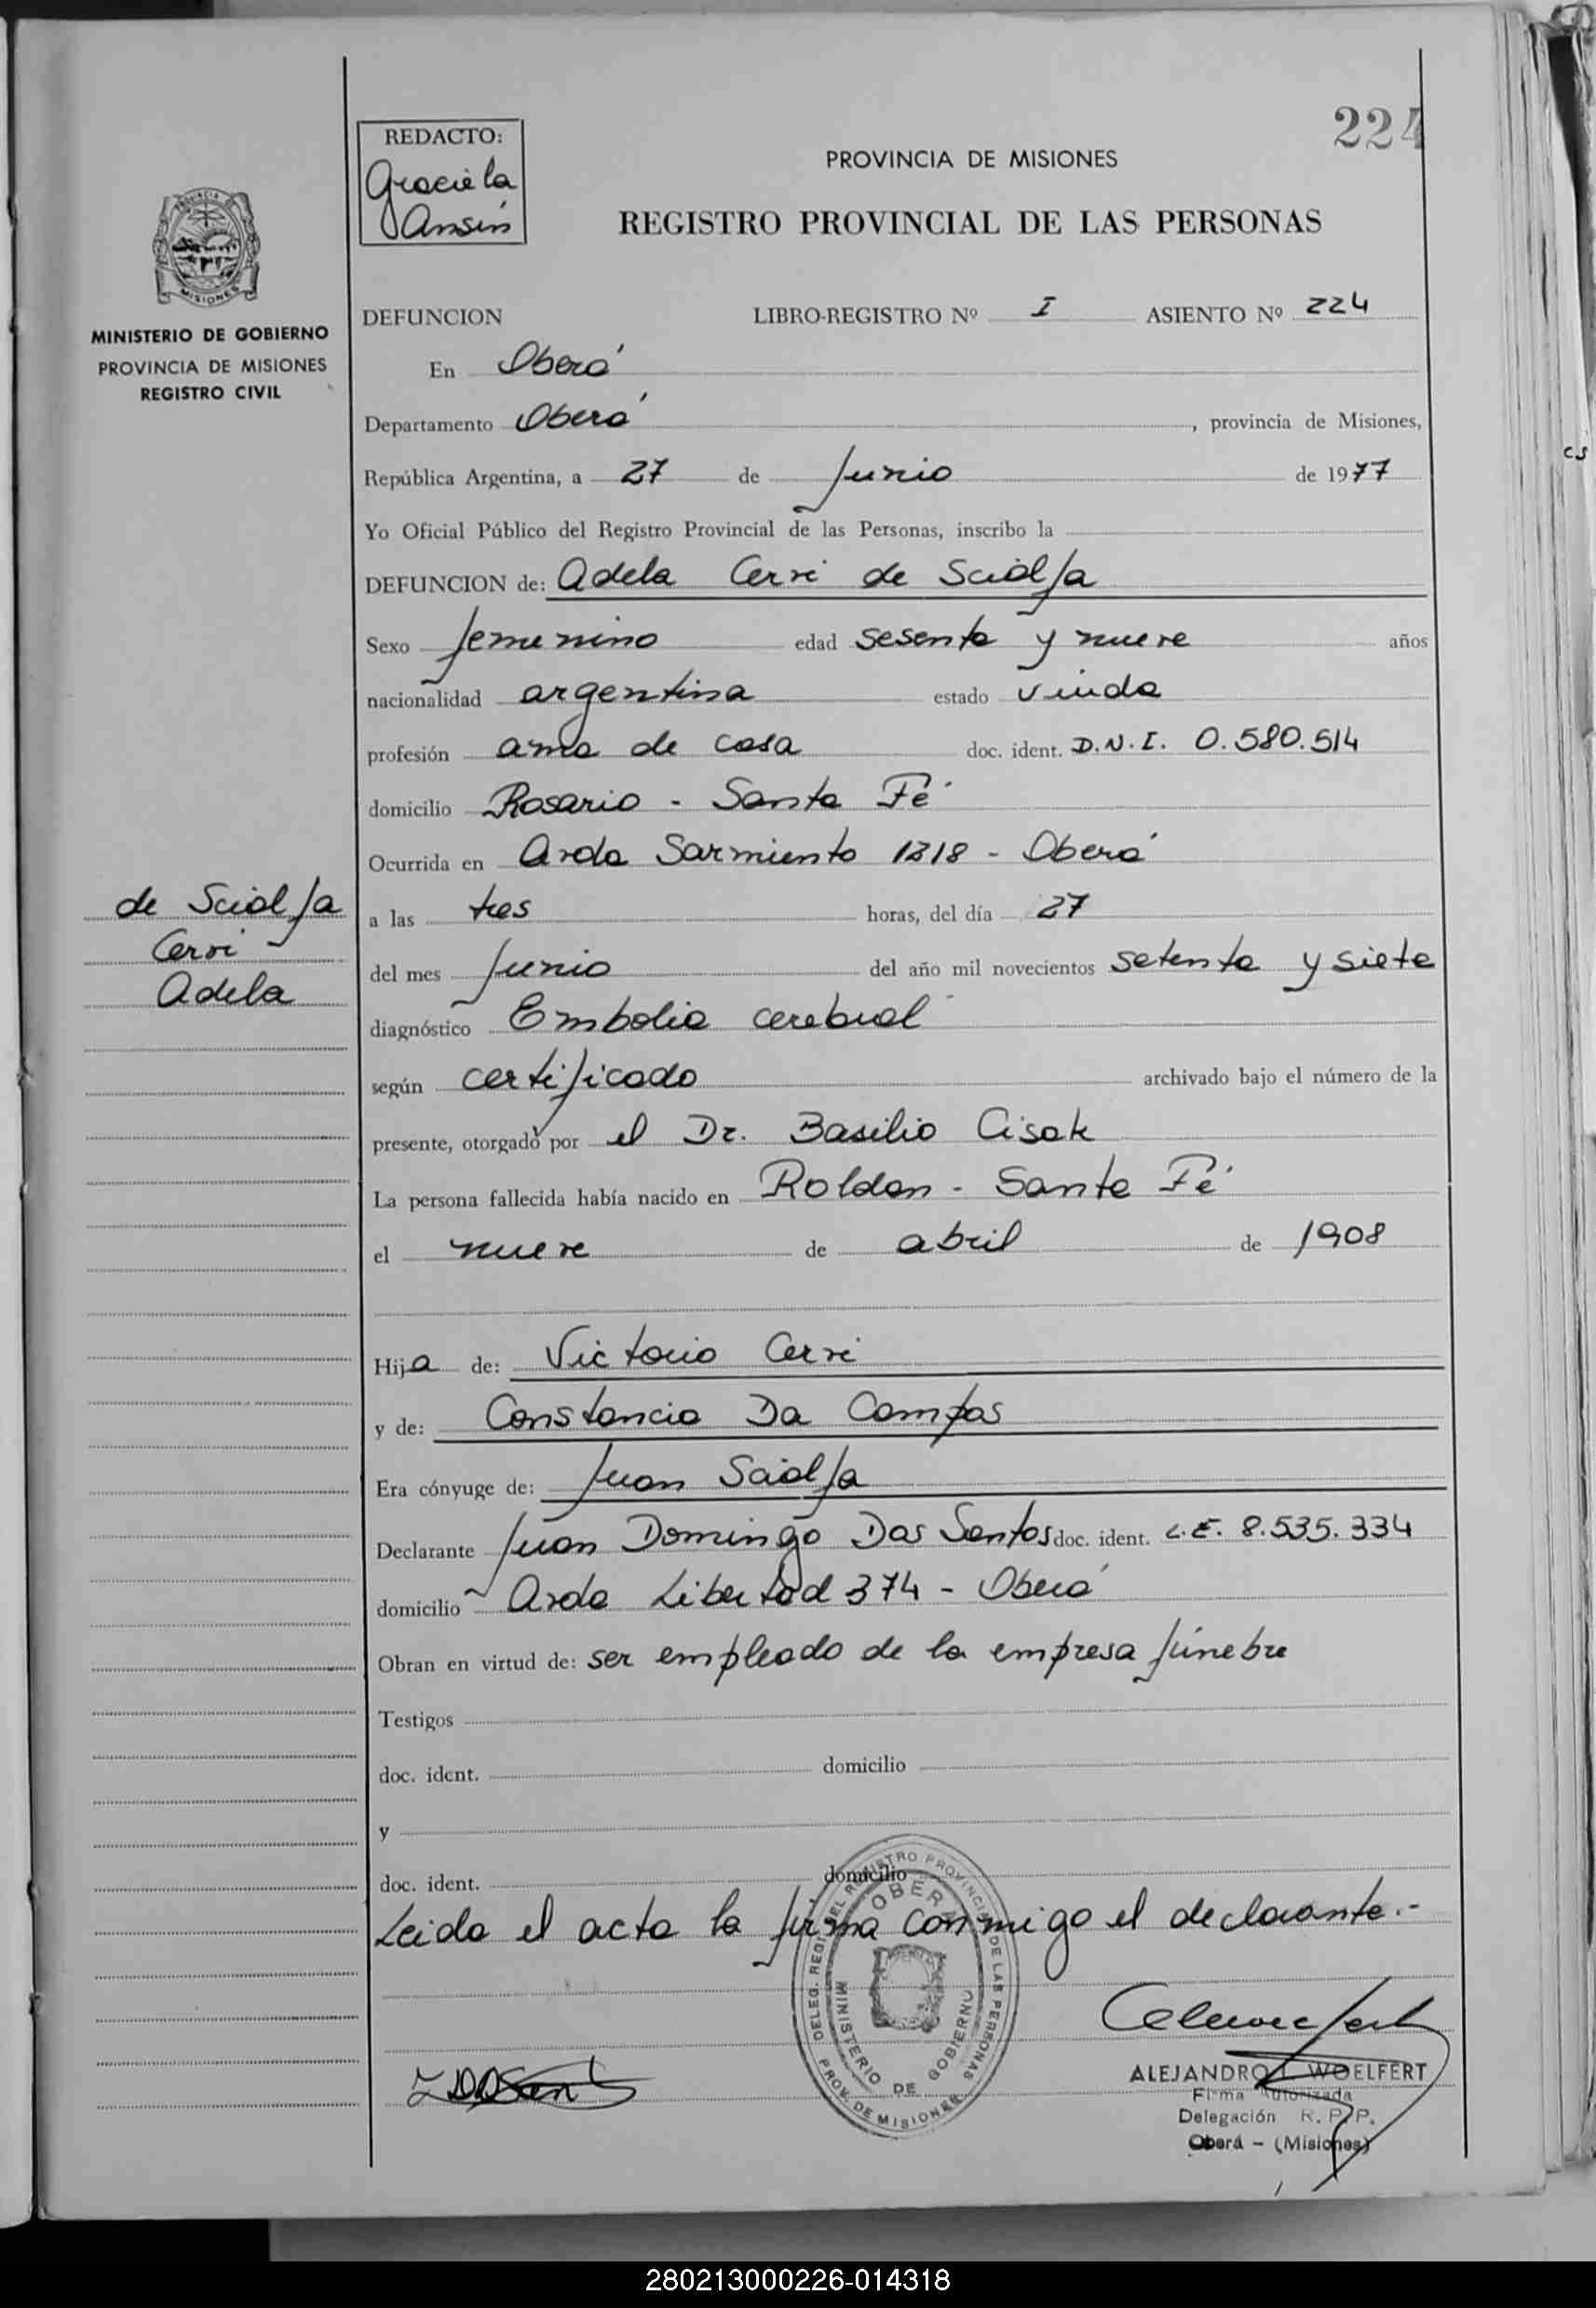 224
REDACTO:
Graciela
Ansin
PROVINCIA DE MISIONES
REGISTRO PROVINCIAL DE LAS PERSONAS
MISIONES
MINISTERIO DE GOBIERNO
PROVINCIA DE MISIONES
REGISTRO CIVIL
DEFUNCION LIBRO-REGISTRO Nº I ASIENTO Nº 224
En Oberá
Departamento Oberá, provincia de Misiones,
República Argentina, a 27 de Junio de 1977
Yo Oficial Público del Registro Provincial de las Personas, inscribo la
DEFUNCION de: Adela Cervi de Sciolfa
Sexo femenino edad sesenta y nueve años
nacionalidad argentina estado viuda
profesión ama de casa doc. ident. D.N.I. 0.580.514
domicilio Rosario - Santa Fé
Ocurrida en Avda Sarmiento 1218 - Oberá
de Sciolfa
Cervi
Adela
a las tres horas, del día 27
del mes Junio del año mil novecientos setenta y siete
diagnóstico Embolia cerebral
según certificado archivado bajo el número de la
presente, otorgado por el Dr. Basilio Cisak
La persona fallecida había nacido en Roldan - Santa Fé
el nueve de abril de 1908
Hija de: Victorio Cervi
y de: Constancia Da Campas
Era cónyuge de: Juan Sciolfa
Declarante Juan Domingo Dos Santos doc. ident. L.E. 8.535.334
domicilio Avda Libertad 374 - Oberá
Obran en virtud de: ser empleado de la empresa fúnebre
Testigos
doc. ident. domicilio
y
doc. ident. domicilio
Leida el acta la firma conmigo el declarante.-
DELEG. REG. DEL REGISTRO PROVINCIAL DE LAS PERSONAS
OBERA
MINISTERIO DE GOBIERNO
PROV. DE MISIONES
ALEJANDRO WOELFERT
Firma Autorizada
Delegación R. P. P.
Oberá - (Misiones)
280213000226-014318